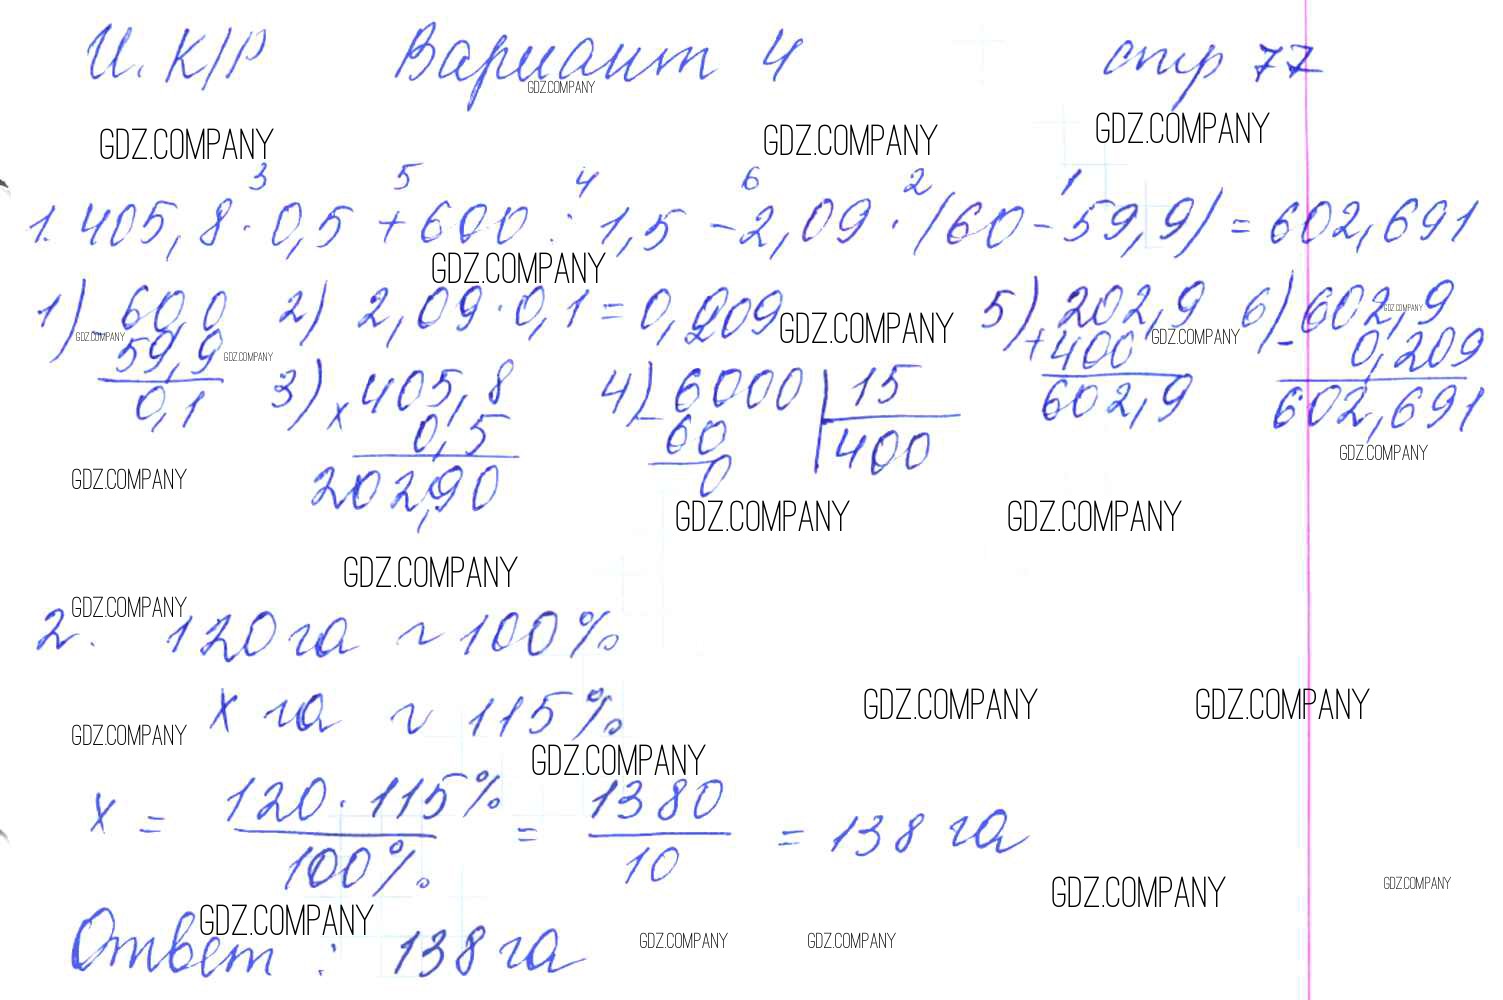 И. К/Р Вариант 4 стр 77
GDZ.COMPANY
GDZ.COMPANY GDZ.COMPANY GDZ.COMPANY
3 5 4 6 2 1
1. 405,8 · 0,5 + 600 : 1,5 - 2,09 · (60 - 59,9) = 602,691
GDZ.COMPANY
1) 60,0 2) 2,09 · 0,1 = 0,209 5) 202,9 6) 602,9
GDZ.COMPANY GDZ.COMPANY GDZ.COMPANY GDZ.COMPANY GDZ.COMPANY
- 59,9 + 400 - 0,209
0,1 3) × 405,8 4) - 6000 | 15 602,9 602,691
0,5 60 400
GDZ.COMPANY GDZ.COMPANY
202,90 0
GDZ.COMPANY GDZ.COMPANY
GDZ.COMPANY
GDZ.COMPANY
2. 120 га ~ 100%
x га ~ 115%
GDZ.COMPANY GDZ.COMPANY
GDZ.COMPANY GDZ.COMPANY
x = 120 · 115% / 100% = 1380 / 10 = 138 га
GDZ.COMPANY GDZ.COMPANY
GDZ.COMPANY GDZ.COMPANY GDZ.COMPANY
Ответ : 138 га